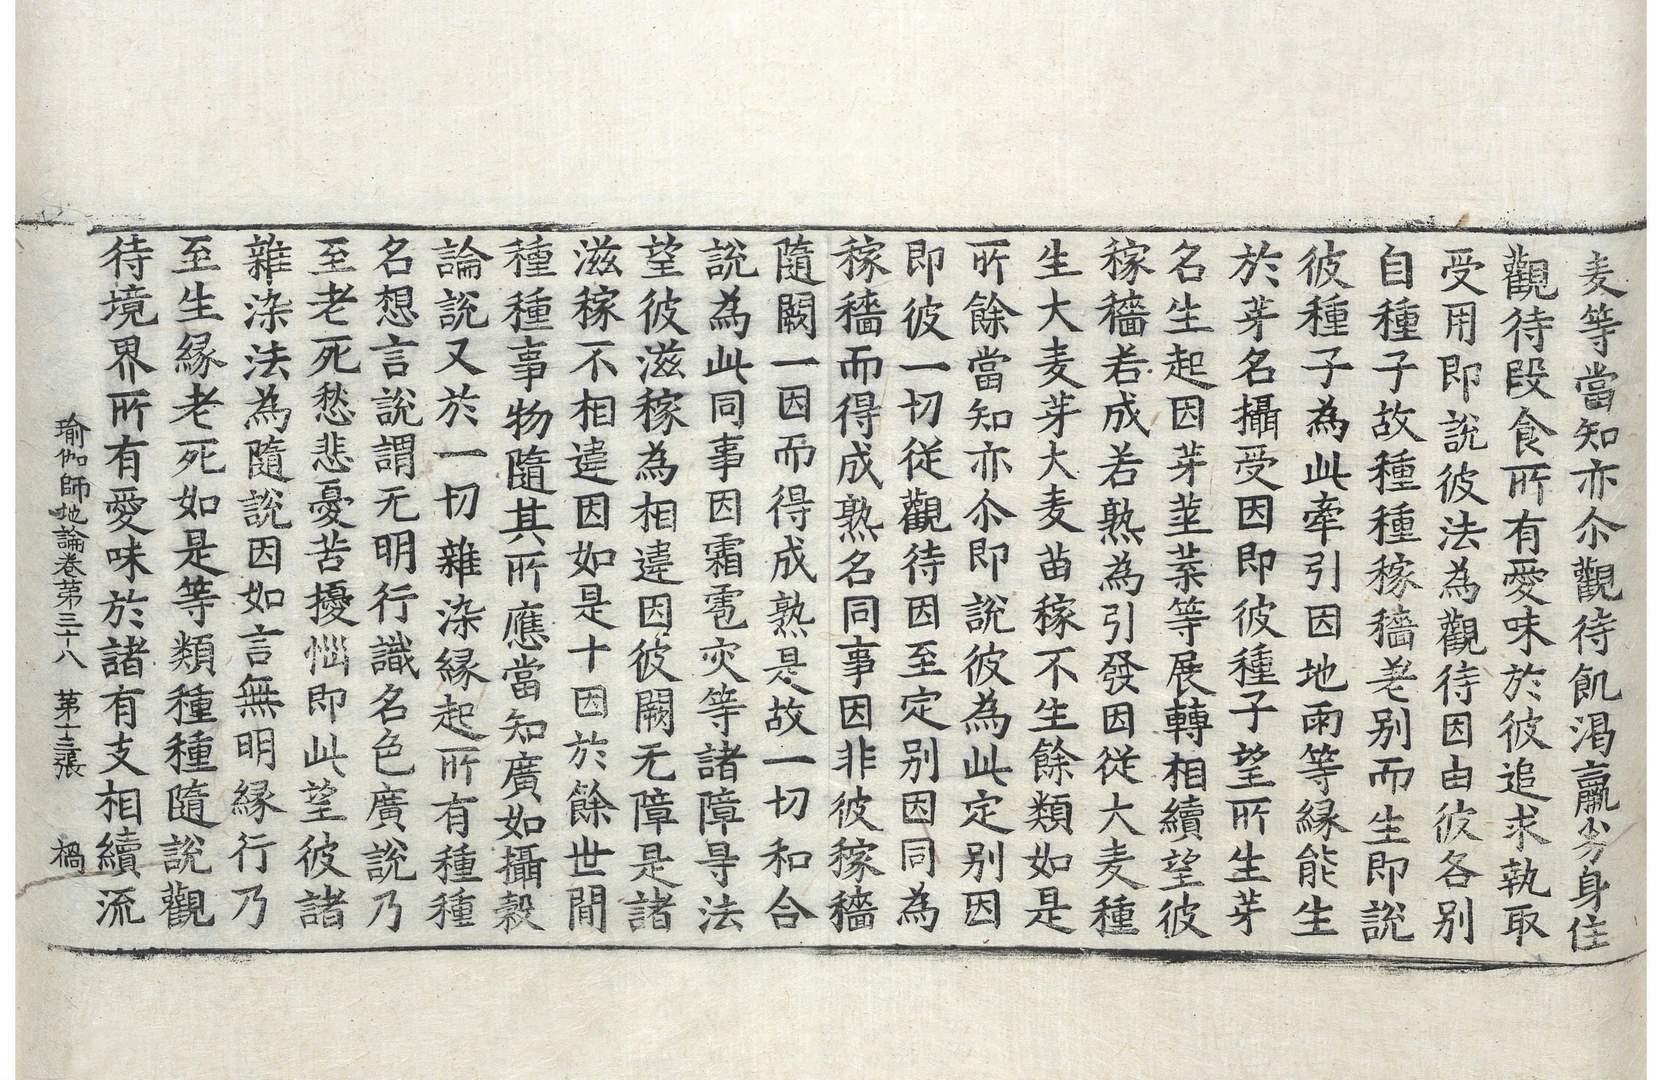 麦等當知亦尒觀待飢渴羸劣身住
觀待段食所有愛味於彼追求執取
受用即說彼法為觀待因由彼各別
自種子故種種稼穡差別而生即說
彼種子為此牽引因地雨等緣能生
於芽名攝受因即彼種子望所生芽
名生起因芽莖葉等展轉相續望彼
稼穡若成若熟為引發因從大麦種
生大麦芽大麦苗稼不生餘類如是
所餘當知亦尒即說彼為此定別因
即彼一切從觀待因至定別因同為
稼穡而得成熟名同事因非彼稼穡
隨闕一因而得成熟是故一切和合
說為此同事因霜雹灾等諸障㝵法
望彼滋稼為相違因彼闕无障是諸
滋稼不相違因如是十因於餘世間
種種事物隨其所應當知廣如攝穀
論說又於一切雜染緣起所有種種
名想言說謂无明行識名色廣說乃
至老死愁悲憂苦擾惱即此望彼諸
雜染法為隨說因如言無明緣行乃
至生緣老死如是等類種種隨說觀
待境界所有愛味於諸有支相續流
瑜伽師地論卷第三十八 第十三張 禍